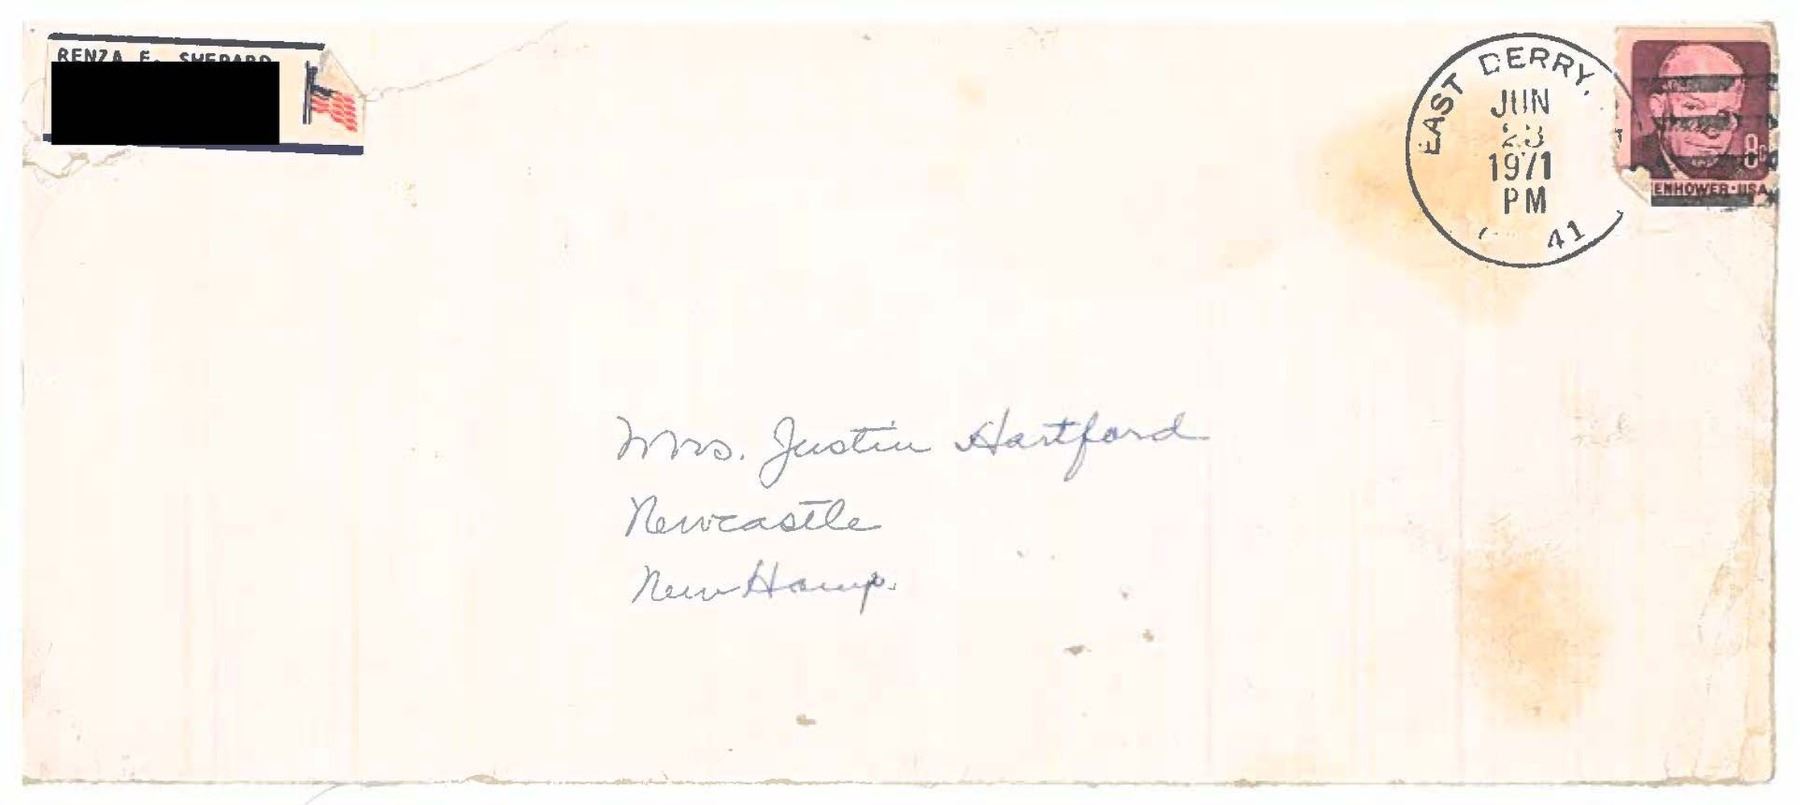 RENZA E. SHEPARD
EAST DERRY,
JUN
23
1971
PM
41
8c
ENHOWER·USA
Mrs. Justin Hartford
Newcastle
New Hamp.